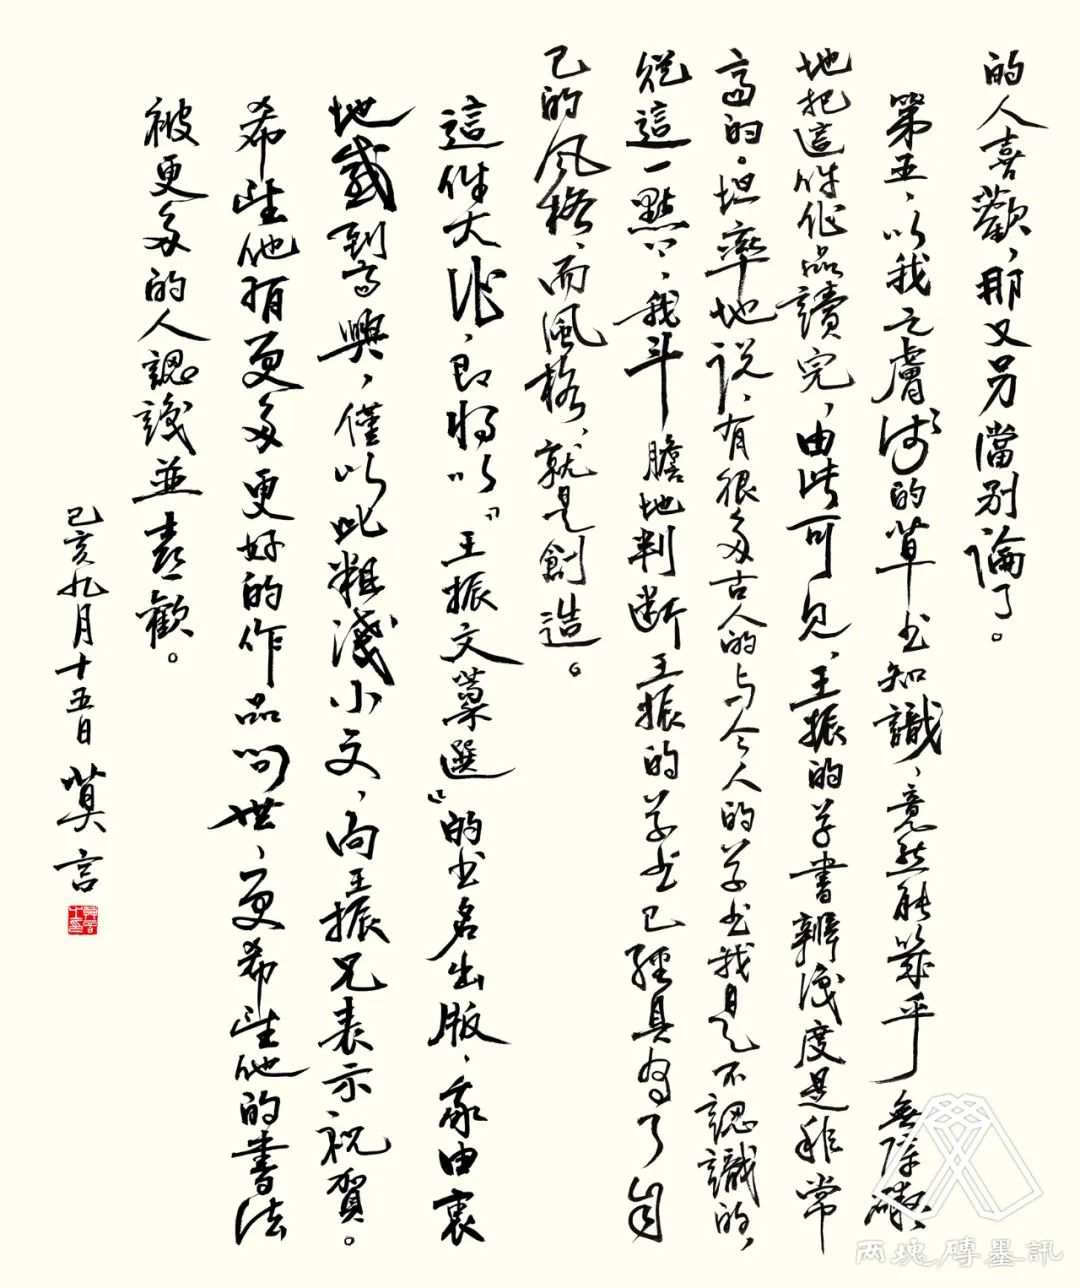 的人喜歡，那又另當别論了。
第五，以我之膚浅的草书知識，竟然能夠幾乎無障礙
地把這件作品讀完，由此可見，王振的草書辨識度是非常
高的。坦率地说，有很多古人的与今人的草书我是不認識的，
從這一點上，我斗膽地判断王振的草书已經具有了自
己的风格，而風格，就是創造。
這件大作，即将以『王振文藁選』的书名出版，我由衷
地感到高興，僅以此粗淺小文，向王振兄表示祝賀。
希望他有更多更好的作品问世，更希望他的書法
被更多的人認識並喜歡。
己亥九月十五日 莫言
两塊磚墨訊